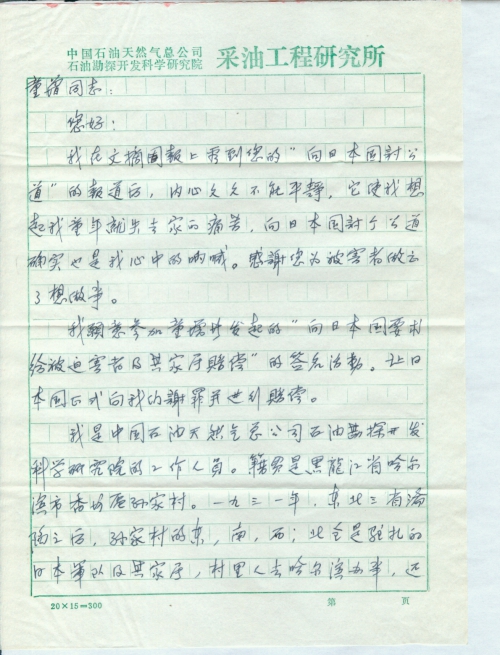 中国石油天然气总公司
石油勘探开发科学研究院 采油工程研究所
童增同志：
您好！
我在文摘周报上看到您的“向日本国討公
道”的報道后，内心久久不能平静，它使我想
起我童年就失去家的痛苦，向日本国討个公道
确实也是我心中的呐喊。感謝您为被害者做
了想做事。
我願意参加童增发起的“向日本国要求
给被迫害者及其家属賠偿”的签名活動。让日
本国正式向我们謝罪并进行賠偿。
我是中国石油天然气总公司石油勘探开发
科学研究院的工作人員。籍貫是黑龍江省哈尔
滨市香坊区孙家村。一九三一年，东北三省淪
陷之后，孙家村的东，南，西；北全是駐扎的
日本軍队及其家属，村里人去哈尔滨办事，还
20×15=300 第 页